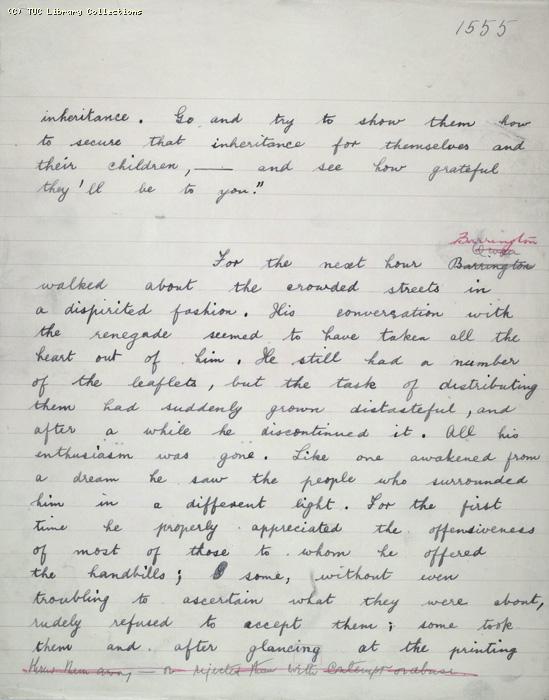 (C) TUC Library Collections
1555
inheritance. Go and try to show them how
to secure that inheritance for themselves and
their children, — and see how grateful
they'll be to you."
Barrington
Owen
For the next hour Barrington
walked about the crowded streets in
a dispirited fashion. His conversation with
the renegade seemed to have taken all the
heart out of him. He still had a number
of the leaflets, but the task of distributing
them had suddenly grown distasteful, and
after a while he discontinued it. All his
enthusiasm was gone. Like one awakened from
a dream he saw the people who surrounded
him in a different light. For the first
time he properly appreciated the offensiveness
of most of those to whom he offered
the handbills; some, without even
troubling to ascertain what they were about,
rudely refused to accept them; some took
them and after glancing at the printing
threw them away — or rejected them with contempt or abuse